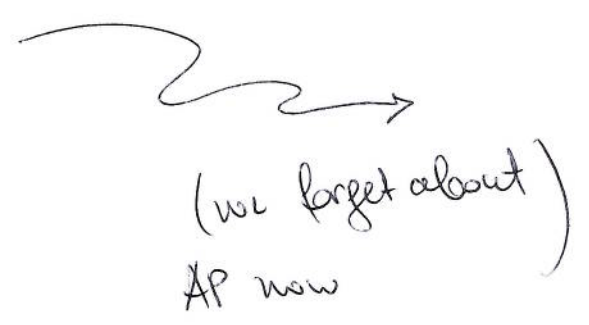 (we forget about)
AP now